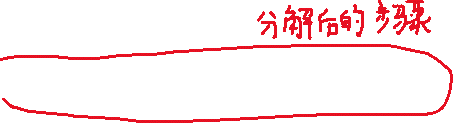 分解后的步骤